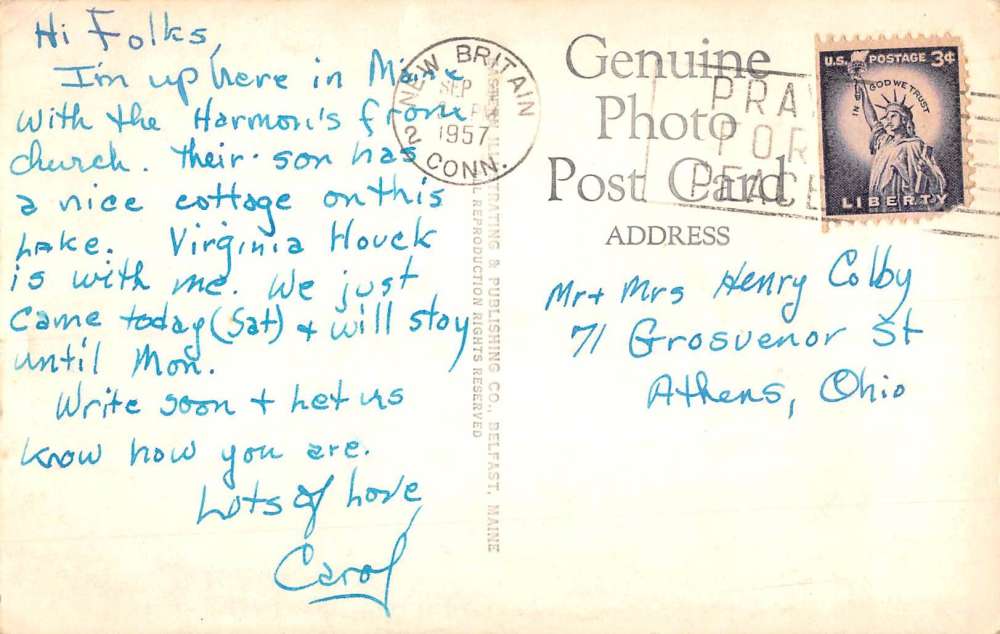 Hi Folks,
I'm up here in Maine
with the Harmon's from
church. Their son has
a nice cottage on this
Lake. Virginia Houck
is with me. We just
came today (Sat) + will stay
until Mon.
Write soon + let us
know how you are.
Lots of Love,
Carol
NEW BRITAIN
SEP
1957
2 CONN.
PRAY
FOR
PEACE
U.S. POSTAGE 3¢
IN GOD WE TRUST
LIBERTY
Genuine
Photo
Post Card
ADDRESS
Mr + Mrs Henry Colby
71 Grosvenor St
Athens, Ohio
ILLUSTRATING & PUBLISHING CO., BELFAST, MAINE
REPRODUCTION RIGHTS RESERVED